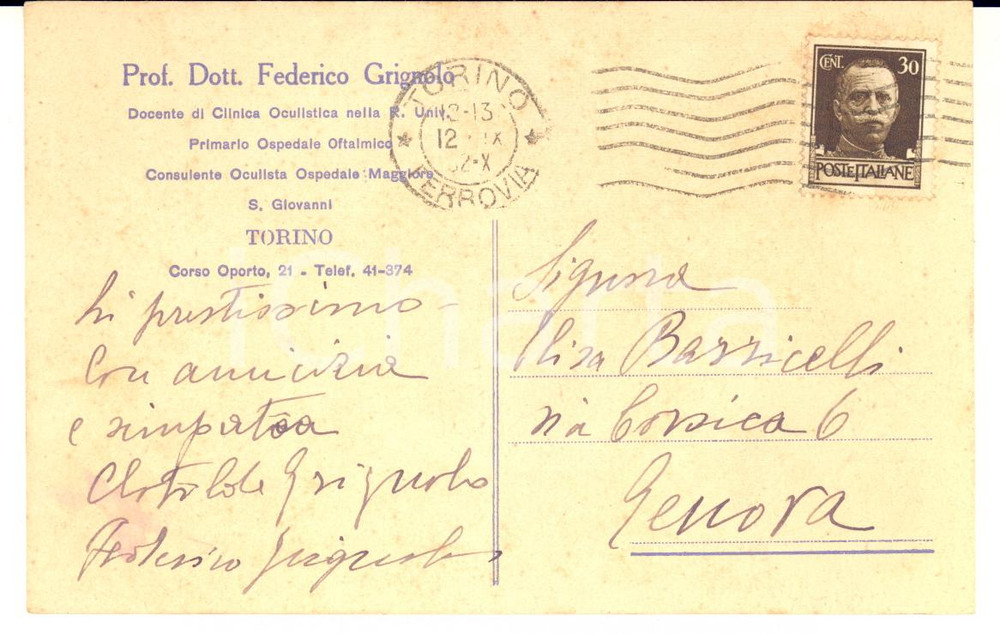 Prof. Dott. Federico Grignolo
Docente di Clinica Oculistica nella R. Univ.
Primario Ospedale Oftalmico
Consulente Oculista Ospedale Maggiore
S. Giovanni
TORINO
Corso Oporto, 21 - Telef. 41-374
TORINO
12-13
12 · IX
32-X
FERROVIA
CENT. 30
POSTE ITALIANE
prestissimo -
Con amicizia
e simpatia
Clotilde Grignolo
Federico Grignolo
Signora
Elisa Barricelli
via Corsica 6
Genova
iCharta